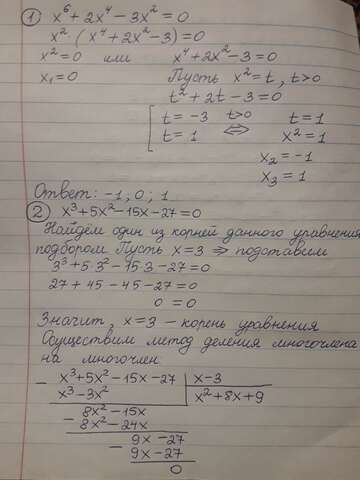 1) x⁶ + 2x⁴ − 3x² = 0
x² · (x⁴ + 2x² − 3) = 0
x² = 0 или x⁴ + 2x² − 3 = 0
x₁ = 0 Пусть x² = t, t > 0
t² + 2t − 3 = 0
[ t = −3 t>0 t = 1
t = 1 ⇔ x² = 1
x₂ = −1
x₃ = 1
Ответ: −1; 0; 1
2) x³ + 5x² − 15x − 27 = 0
Найдём один из корней данного уравнения
подбором. Пусть x = 3 ⇒ подставим
3³ + 5·3² − 15·3 − 27 = 0
27 + 45 − 45 − 27 = 0
0 = 0
Значит, x = 3 – корень уравнения
Осуществим метод деления многочлена
на многочлен:
− x³ + 5x² − 15x − 27 | x − 3
x³ − 3x² | x² + 8x + 9
− 8x² − 15x
8x² − 24x
− 9x − 27
9x − 27
0